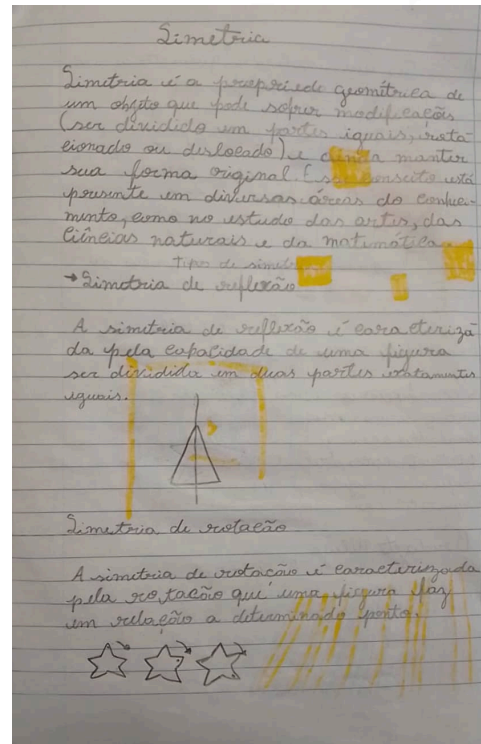 Simetria
Simetria é a propriedade geométrica de
um objeto que pode sofrer modificações
(ser dividido em partes iguais, rota-
cionado ou deslocado) e ainda manter
sua forma original. Esse conscito está
presente em diversas áreas do conheci-
mento, como no estudo das artes, das
Ciências naturais e da matemática.
Tipos de simetria
→ Simetria de reflexão
A simetria de reflexão é caracteriza
da pela capacidade de uma figura
ser dividida em duas partes exatamentes
iguais.
Simetria de rotação
A simetria de rotação é caracterizada
pela rotação que uma figura faz
em relação a determinado ponto.